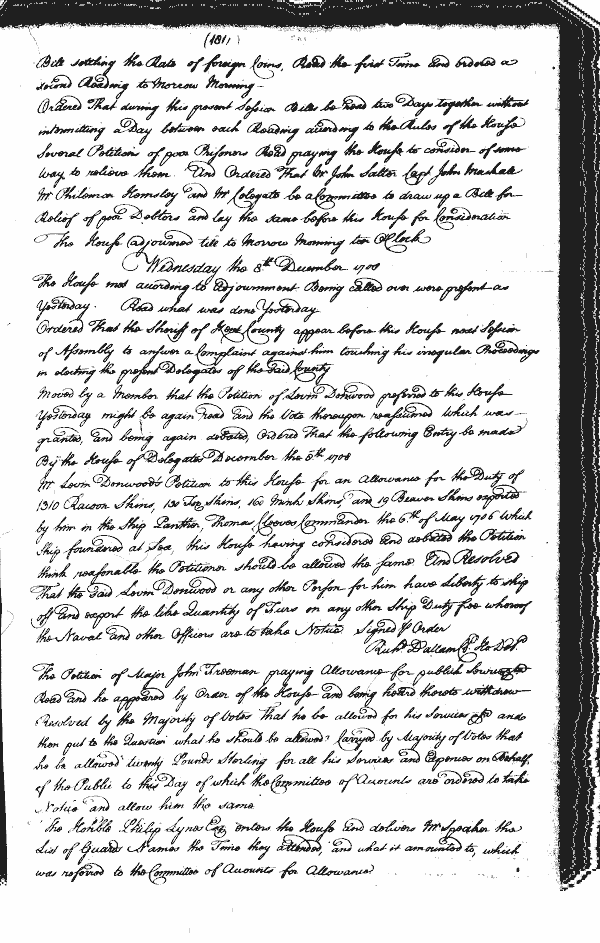 (181)
Bill settling the Rate of foreign Coins, Read the first Time and ordered a
second Reading to Morrow Morning
Ordered That during this present Session Bills be read two Days together without
intermitting a Day between each Reading according to the Rules of the House
Several Petitions of poor Prisoners Read praying the House to consider of some
way to relieve them. And Ordered That Mr John Salter Capt John Mashall
Mr Philemon Hemsley and Mr Colegate be a Committee to draw up a Bill for
Relief of poor Debtors and lay the same before this House for Consideration
The House adjourned till to Morrow Morning ten OClock
Wednesday the 8th December 1708
The House met according to Adjournment Being called over were present as
Yesterday. Read what was done Yesterday
Ordered That the Sheriff of Kent County appear before this House next Session
of Assembly to answer a Complaint against him touching his irregular Proceedings
in electing the present Delegates of the said County
Moved by a Member that the Petition of Levin Denwood preferred to this House
Yesterday might be again read and the Vote thereupon reassumed which was
granted, and being again debated, Ordered That the following Entry be made
By the House of Delegates December the 8th 1708
Mr Levin Denwood's Petition to this House for an Allowance for the Duty of
1310 Racoon Skins, 130 Fox Skins, 160 Minh Skins, and 19 Beaver Skins exported
by him in the Ship Panther, Thomas Reeves Commander the 6th of May 1706 Which
Ship foundered at Sea, this House having considered and debated the Petition
think reasonable the Petitioner should be allowed the same And Resolved
That the said Levin Denwood or any other Person for him have Liberty to ship
off and export the like Quantity of Furs on any other Ship Duty free whereof
the Naval and other Officers are to take Notice Signed P Order
Richd Dallam Cl. Ho Del.
The Petition of Major John Freeman praying Allowance for publick Services
Read and he appeared by Order of the House and being heard thereto withdrew
Resolved by the Majority of Votes That he be allowed for his Services and
then put to the Question what he should be allowed? Carryed by Majority of Votes that
he be allowed twenty Pounds Sterling for all his Services and Expences on Behalf
of the Public to this Day of which the Committee of Accounts are ordered to take
Notice and allow him the same
The Honble Philip Lynes Esq enters the House and delivers Mr Speaker the
List of Guards Names the Time they attended, and what it amounted to, which
was referred to the Committee of Accounts for Allowance